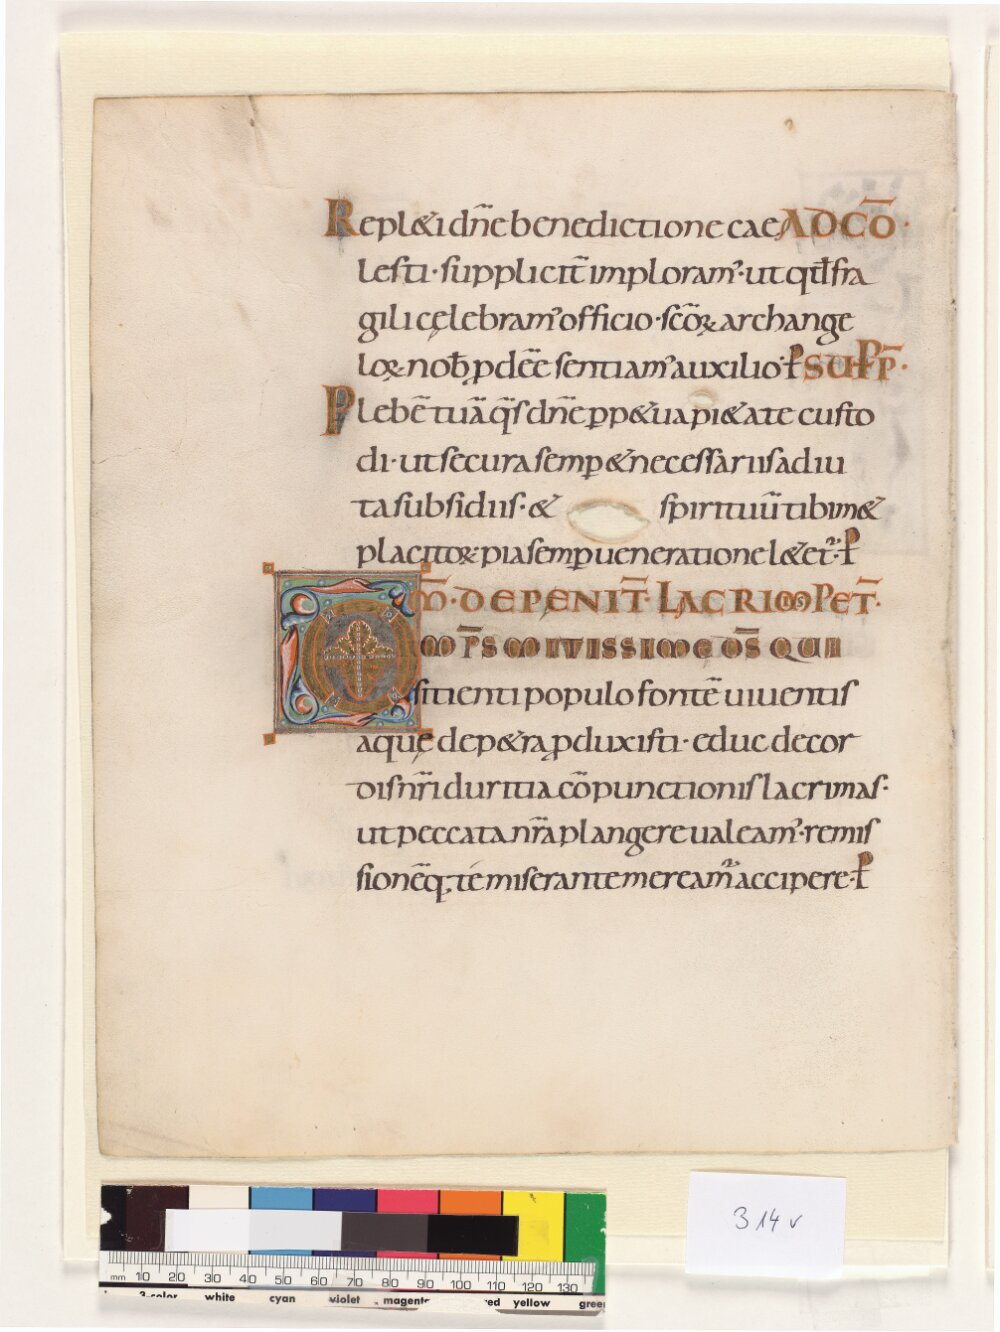 Repl&i dn̄e benedictione cae AD CŌ·
lesti· supplicit̄ imploram᾿· ut qđ fra
gili cęlebram᾿ officio· sc̄oꝝ archange
loꝝ nob̄ ꝓdeē sentiam᾿ auxilio· ꝑ SUꝑP̄·
Plebē tuā q̄s dn̄e ꝑp&ua pi&ate custo
di· ut secura semꝑ & necessariis adiu
ta subsidiis· & spirituū tibim&
placitoꝝ pia semꝑ ueneratione l&et᷒· ꝑ
M̄· DE PENIT̄· LACRIMIS PET̄·
OMP̄S MITISSIME DS̄ QUI
sitienti populo fontē uiuentis
aquę de p&ra ꝓduxisti· educ de cor
dis nr̄i duritia cōpunctionis lacrimas·
ut peccata nr̄a plangere ualeam᾿· remis
sionēq; te miserante meream᷒ accipere· ꝑ
314v
mm 10 20 30 40 50 60 70 80 90 100 110 120 130
3-color white cyan violet magenta red yellow green